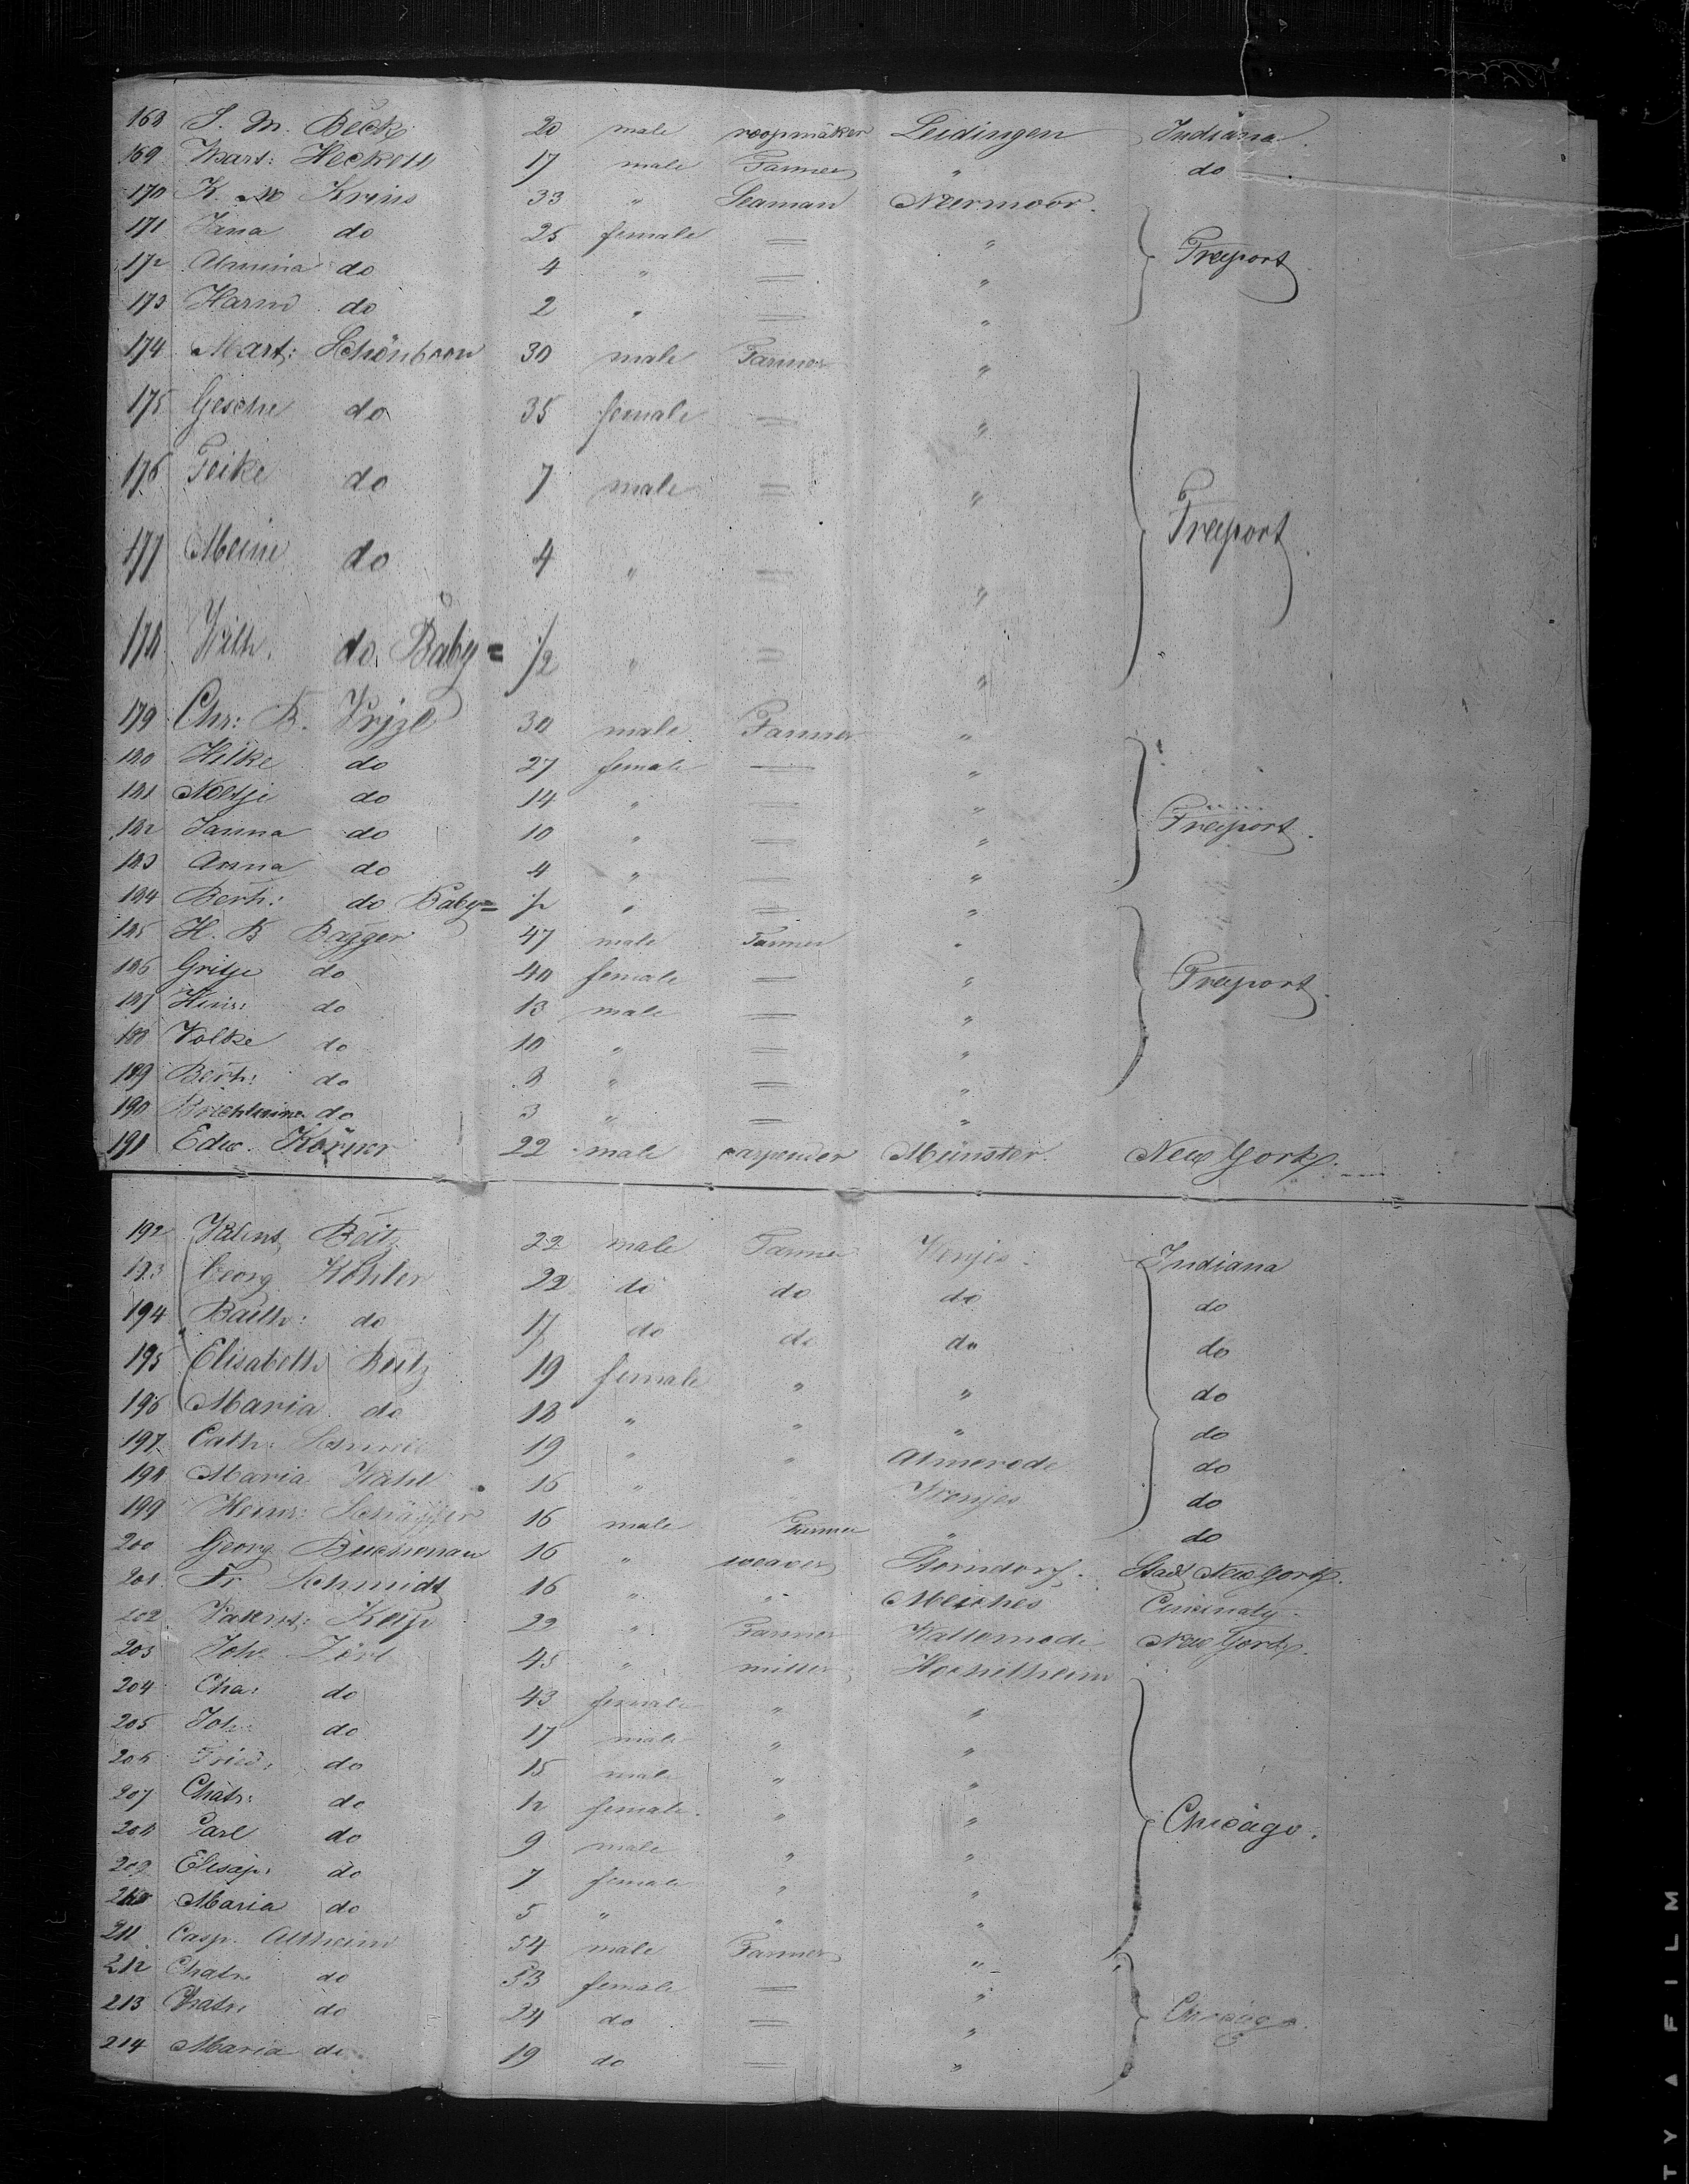 168 J. M. Beck 20 male roopmäker Leidingen Indiana.
169 Mart: Heckott 17 male Farmer " do
170 K. M Krins 33 " Seaman Neermoor.
171 Jana do 25 female = "
172 Almina do 4 " = " Freeport
173 Harm do 2 " = "
174 Mart: Schönboon 30 male Farmer "
175 Gesche do 35 female = "
176 Feike do 7 male = "
177 Meine do 4 " = " Freeport.
178 Wilh. do. Baby = 1/2 " = "
179 Chr: B. 30 male Farmer "
180 Hilke do 27 female = "
181 Noltje do 14 " = "
182 Janna do 10 " = " Freeport.
183 Anna do 4 " = "
184 Berh: do Baby = 1/2 " = "
185 H. B Bagger 47 male Farmer "
186 Gritje do 40 female = " Freeport.
187 Hinr: do 13 male = "
188 Volke do 10 " = "
189 Berh: do 8 " = "
190 do 3 " = "
191 Edw. Körner 22 male carpender Münster. New York.
192 Valent. Reitz 22 male Farmer Indiana
193 Georg Köhler 22 do do do do
194 Balth: do 17 do do do do
195 Elisabeth Reitz 19 female " " do
196 Maria do 18 " " " do
197 Cath: 19 " " Almerode do
198 Maria Wahl 16 " do
199 Heinr: Schäffer 16 male Farmer " do
200 Georg Buchenau 16 " weaver Storndorf. Stadt New York.
201 Fr. Schmidt 16 " " Meiches Cincinaty.
202 Valent: 22 " Farmer New York.
203 Joh. 45 " miller
204 Cha: do 43 female " "
205 Joh: do 17 male " "
206 Fried: do 15 male " "
207 Chatr: do 12 female " "
208 Carl do 9 male " " Chicago.
209 Elisap: do 7 female " "
210 Maria do 5 " " "
211 Casp. Altheim 54 male Farmer "
212 Chatr. do 53 female = "
213 Chatr. do 24 do = " Chicago.
214 Maria do 19 do = "